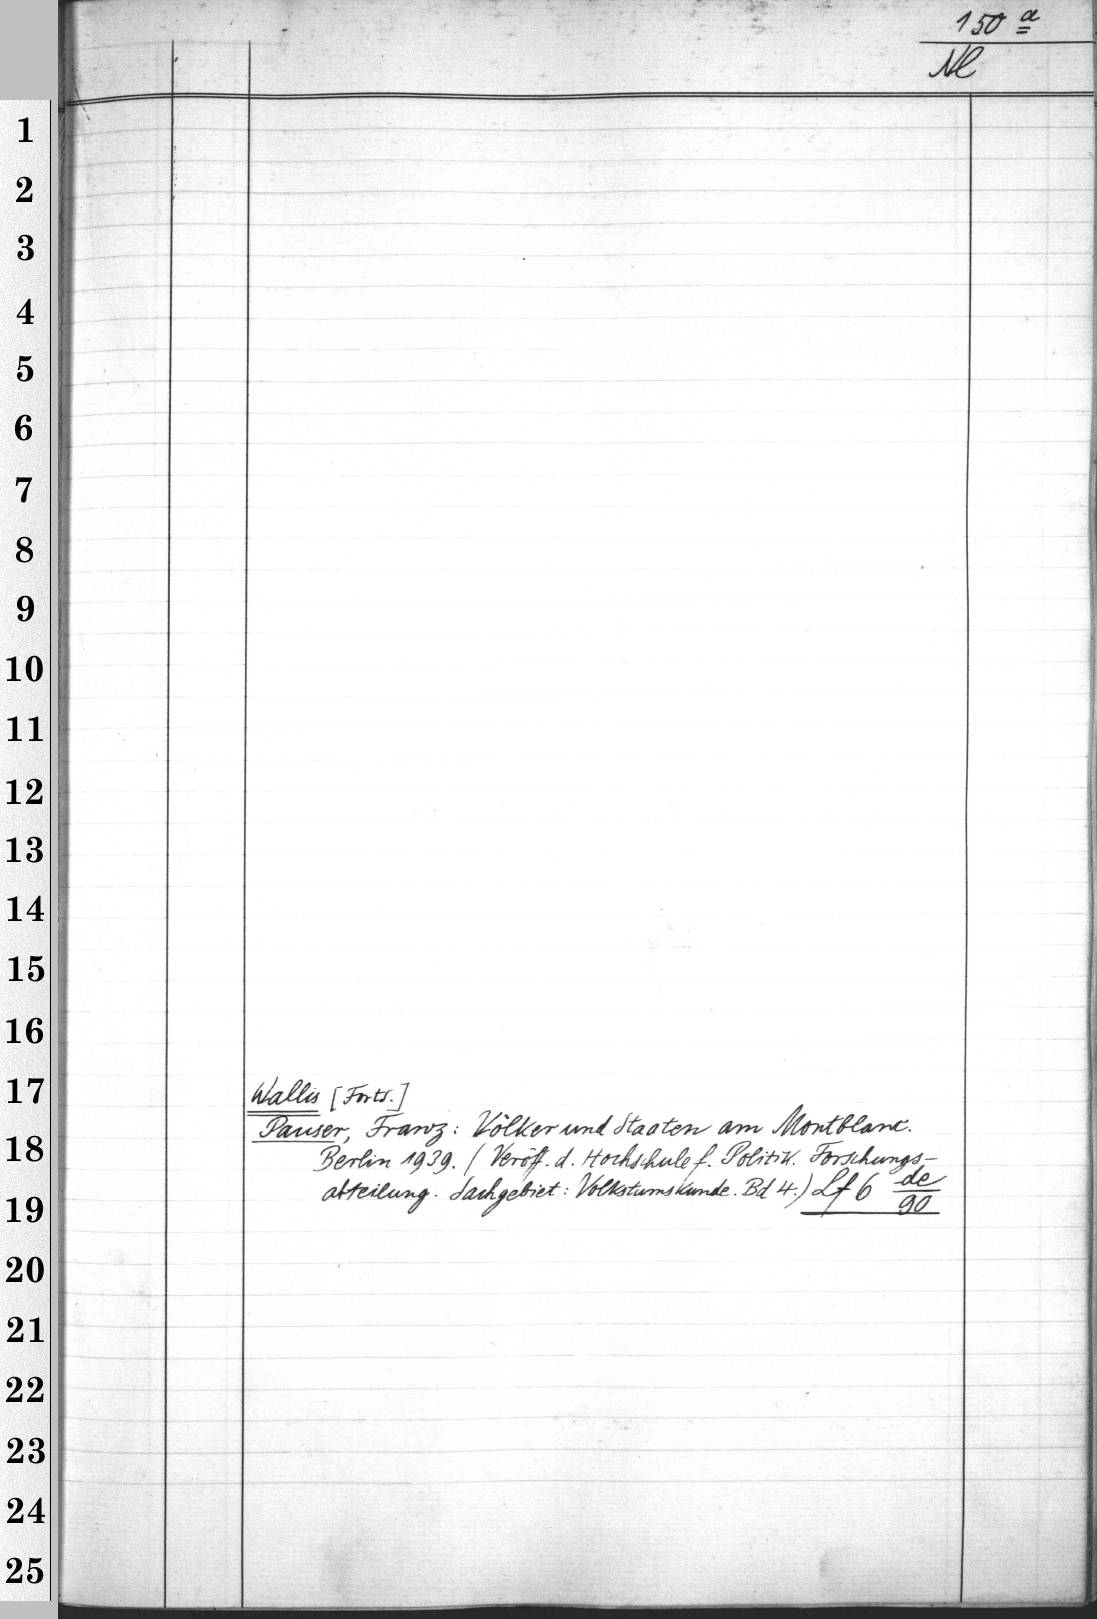 150 a
Nl
1
2
3
4
5
6
7
8
9
10
11
12
13
14
15
16
17
Wallis [Forts.]
Pauser, Franz: Völker und Staaten am Montblanc.
18
Berlin 1939. (Veröff. d. Hochschule f. Politik. Forschungs-
abteilung. Sachgebiet: Volkstumskunde. Bd 4.) Lf 6 de/90
19
20
21
22
23
24
25